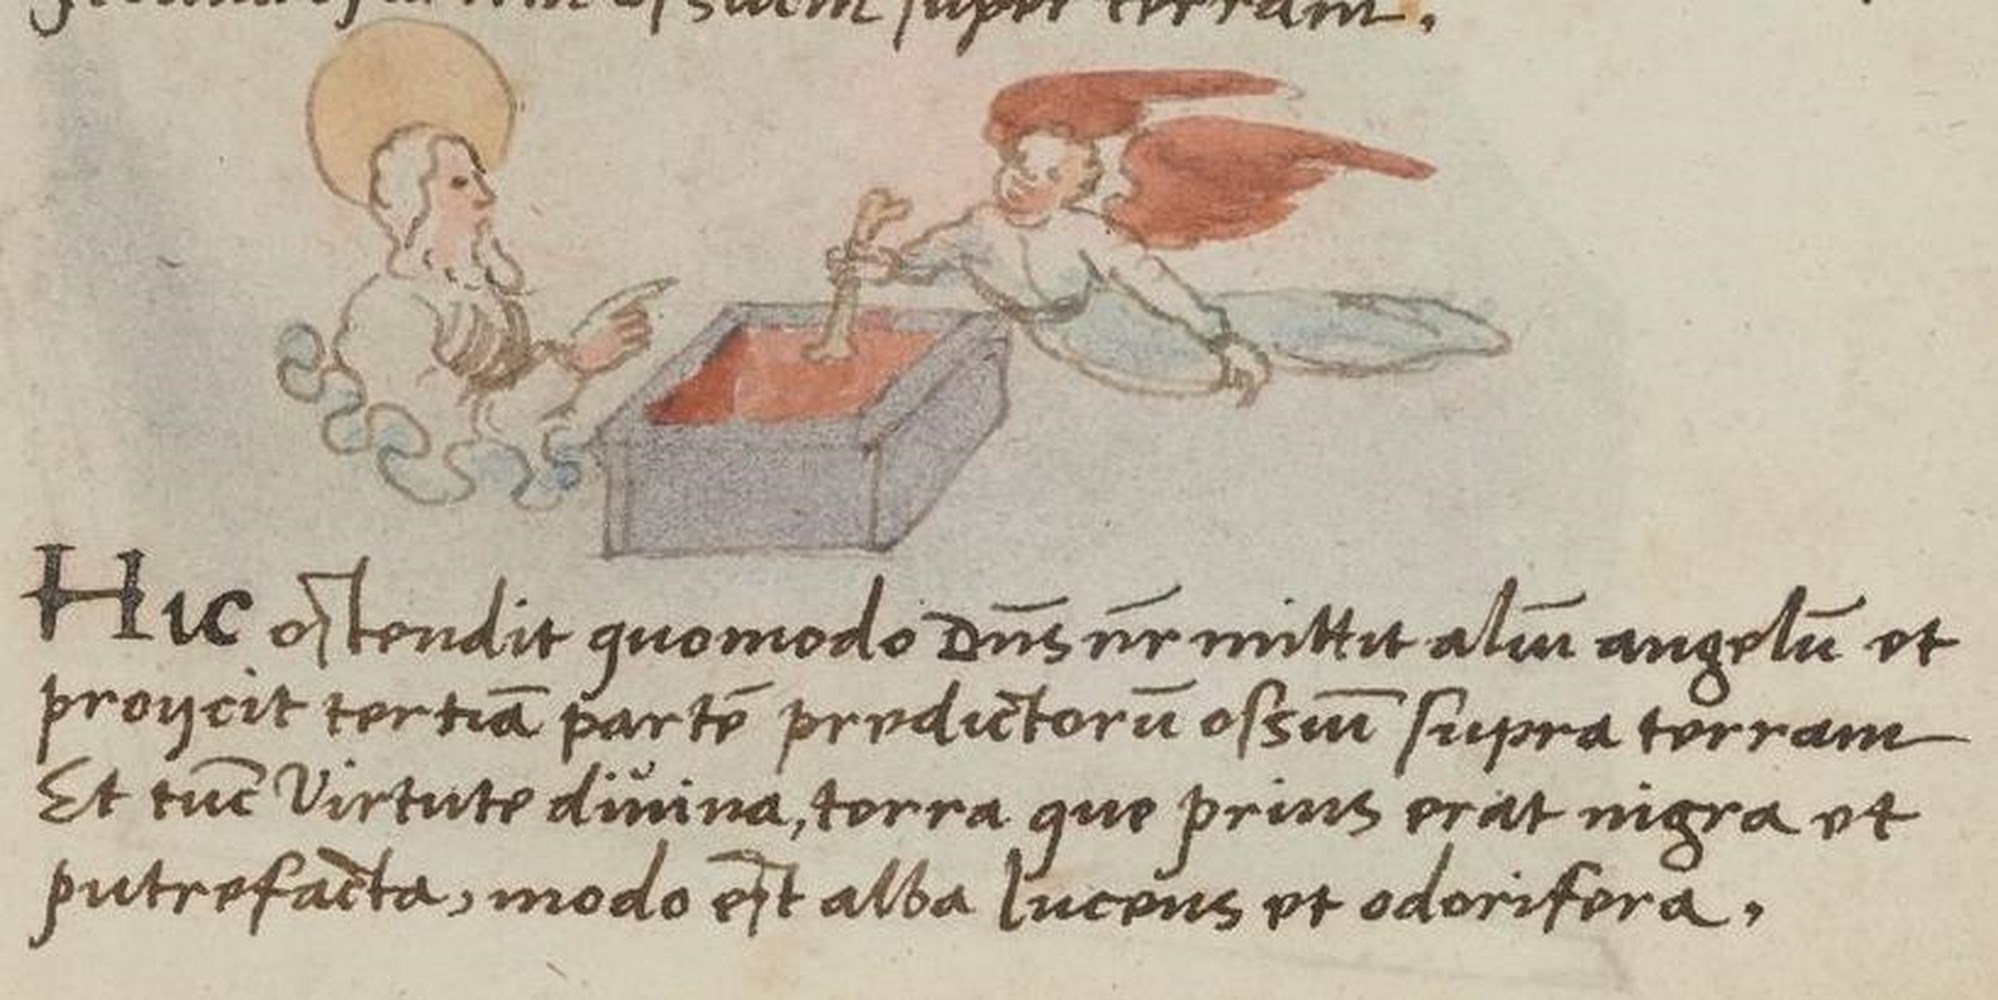 super terram.
Hic ostendit quomodo Dn̄s nr̄ mittit aliū angelū et
proijcit tertiā partē predictorū ossiū supra terram
Et tūc Virtute diuina, terra que prius erat nigra et
putrefacta, modo est alba lucens et odorifera.